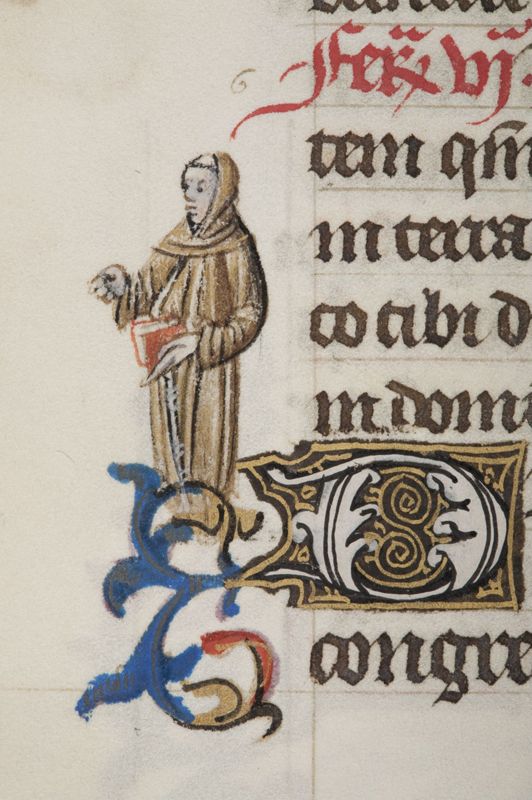 6
Fer vj
tem qm̄
in terra
co cibi d
in domi
D
congre